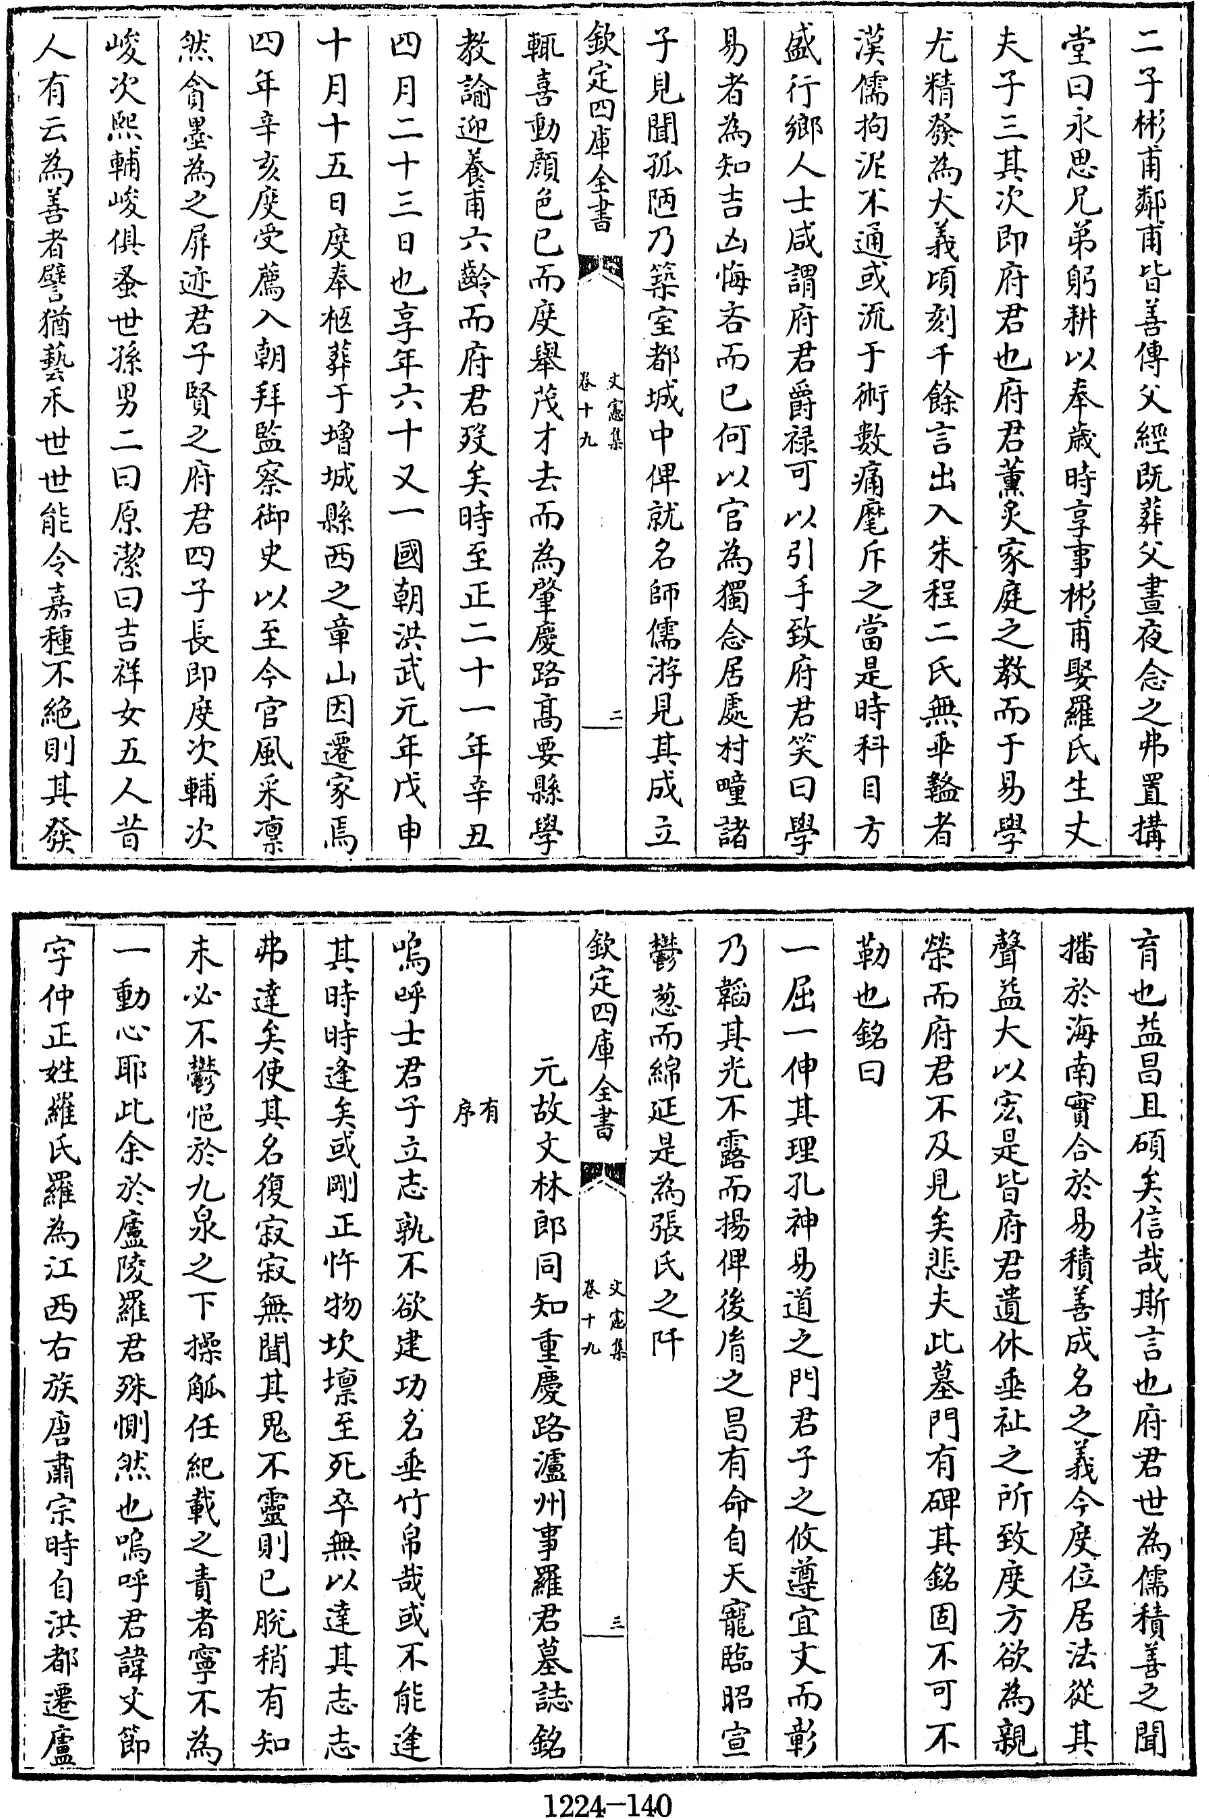 二子彬甫鄰甫皆善傳父經既葬父晝夜念之弗置構
堂曰永思兄弟躬耕以奉歲時享事彬甫娶羅氏生丈
夫子三其次即府君也府君薰炙家庭之教而于易學
尤精發為大義頃刻千餘言出入朱程二氏無乖盭者
漢儒拘泥不通或流于術數痛麾斥之當是時科目方
盛行鄉人士咸謂府君爵祿可以引手致府君笑曰學
易者為知吉凶悔吝而已何以官為獨念居處村疃諸
子見聞孤陋乃築室都城中俾就名師儒游見其成立
欽定四庫全書
文憲集
卷十九
二
輒喜動顔色已而度舉茂才去而為肇慶路高要縣學
教諭迎養甫六齡而府君歿矣時至正二十一年辛丑
四月二十三日也享年六十又一國朝洪武元年戊申
十月十五日度奉柩葬于增城縣西之章山因遷家焉
四年辛亥度受薦入朝拜監察御史以至今官風采凛
然貪墨為之屏迹君子賢之府君四子長即度次輔次
峻次熙輔峻俱蚤世孫男二曰原潔曰吉祥女五人昔
人有云為善者譬猶藝禾世世能令嘉種不絶則其發
育也益昌且碩矣信哉斯言也府君世為儒積善之聞
播於海南實合於易積善成名之義今度位居法從其
聲益大以宏是皆府君遺休垂祉之所致度方欲為親
榮而府君不及見矣悲夫此墓門有碑其銘固不可不
勒也銘曰
一屈一伸其理孔神易道之門君子之攸遵宜文而彰
乃韜其光不露而揚俾後胤之昌有命自天寵臨昭宣
鬱葱而綿延是為張氏之阡
欽定四庫全書
文憲集
卷十九
三
元故文林郎同知重慶路瀘州事羅君墓誌銘
有序
嗚呼士君子立志孰不欲建功名垂竹帛哉或不能逢
其時時逢矣或剛正忤物坎壈至死卒無以達其志志
弗達矣使其名復寂寂無聞其鬼不靈則已脫稍有知
未必不鬱悒於九泉之下操觚任紀載之責者寧不為
一動心耶此余於廬陵羅君殊惻然也嗚呼君諱文節
字仲正姓羅氏羅為江西右族唐肅宗時自洪都遷廬
1224-140